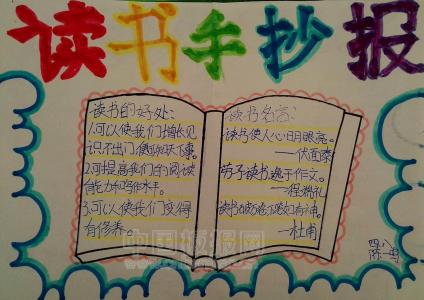 读书手抄报
读书的好处:
1.可以使我们增长见
识不出门,便知天下事。
2.可提高我们的阅读
有能力和写作水平。
3.可以使我们变得
有修养。
读书名言:
读书使人心明眼亮。
——伏尔泰
劳于读书,逸于作文。
——程端礼
读书破万卷下笔如有神。
——杜甫
中国板报网
四、八